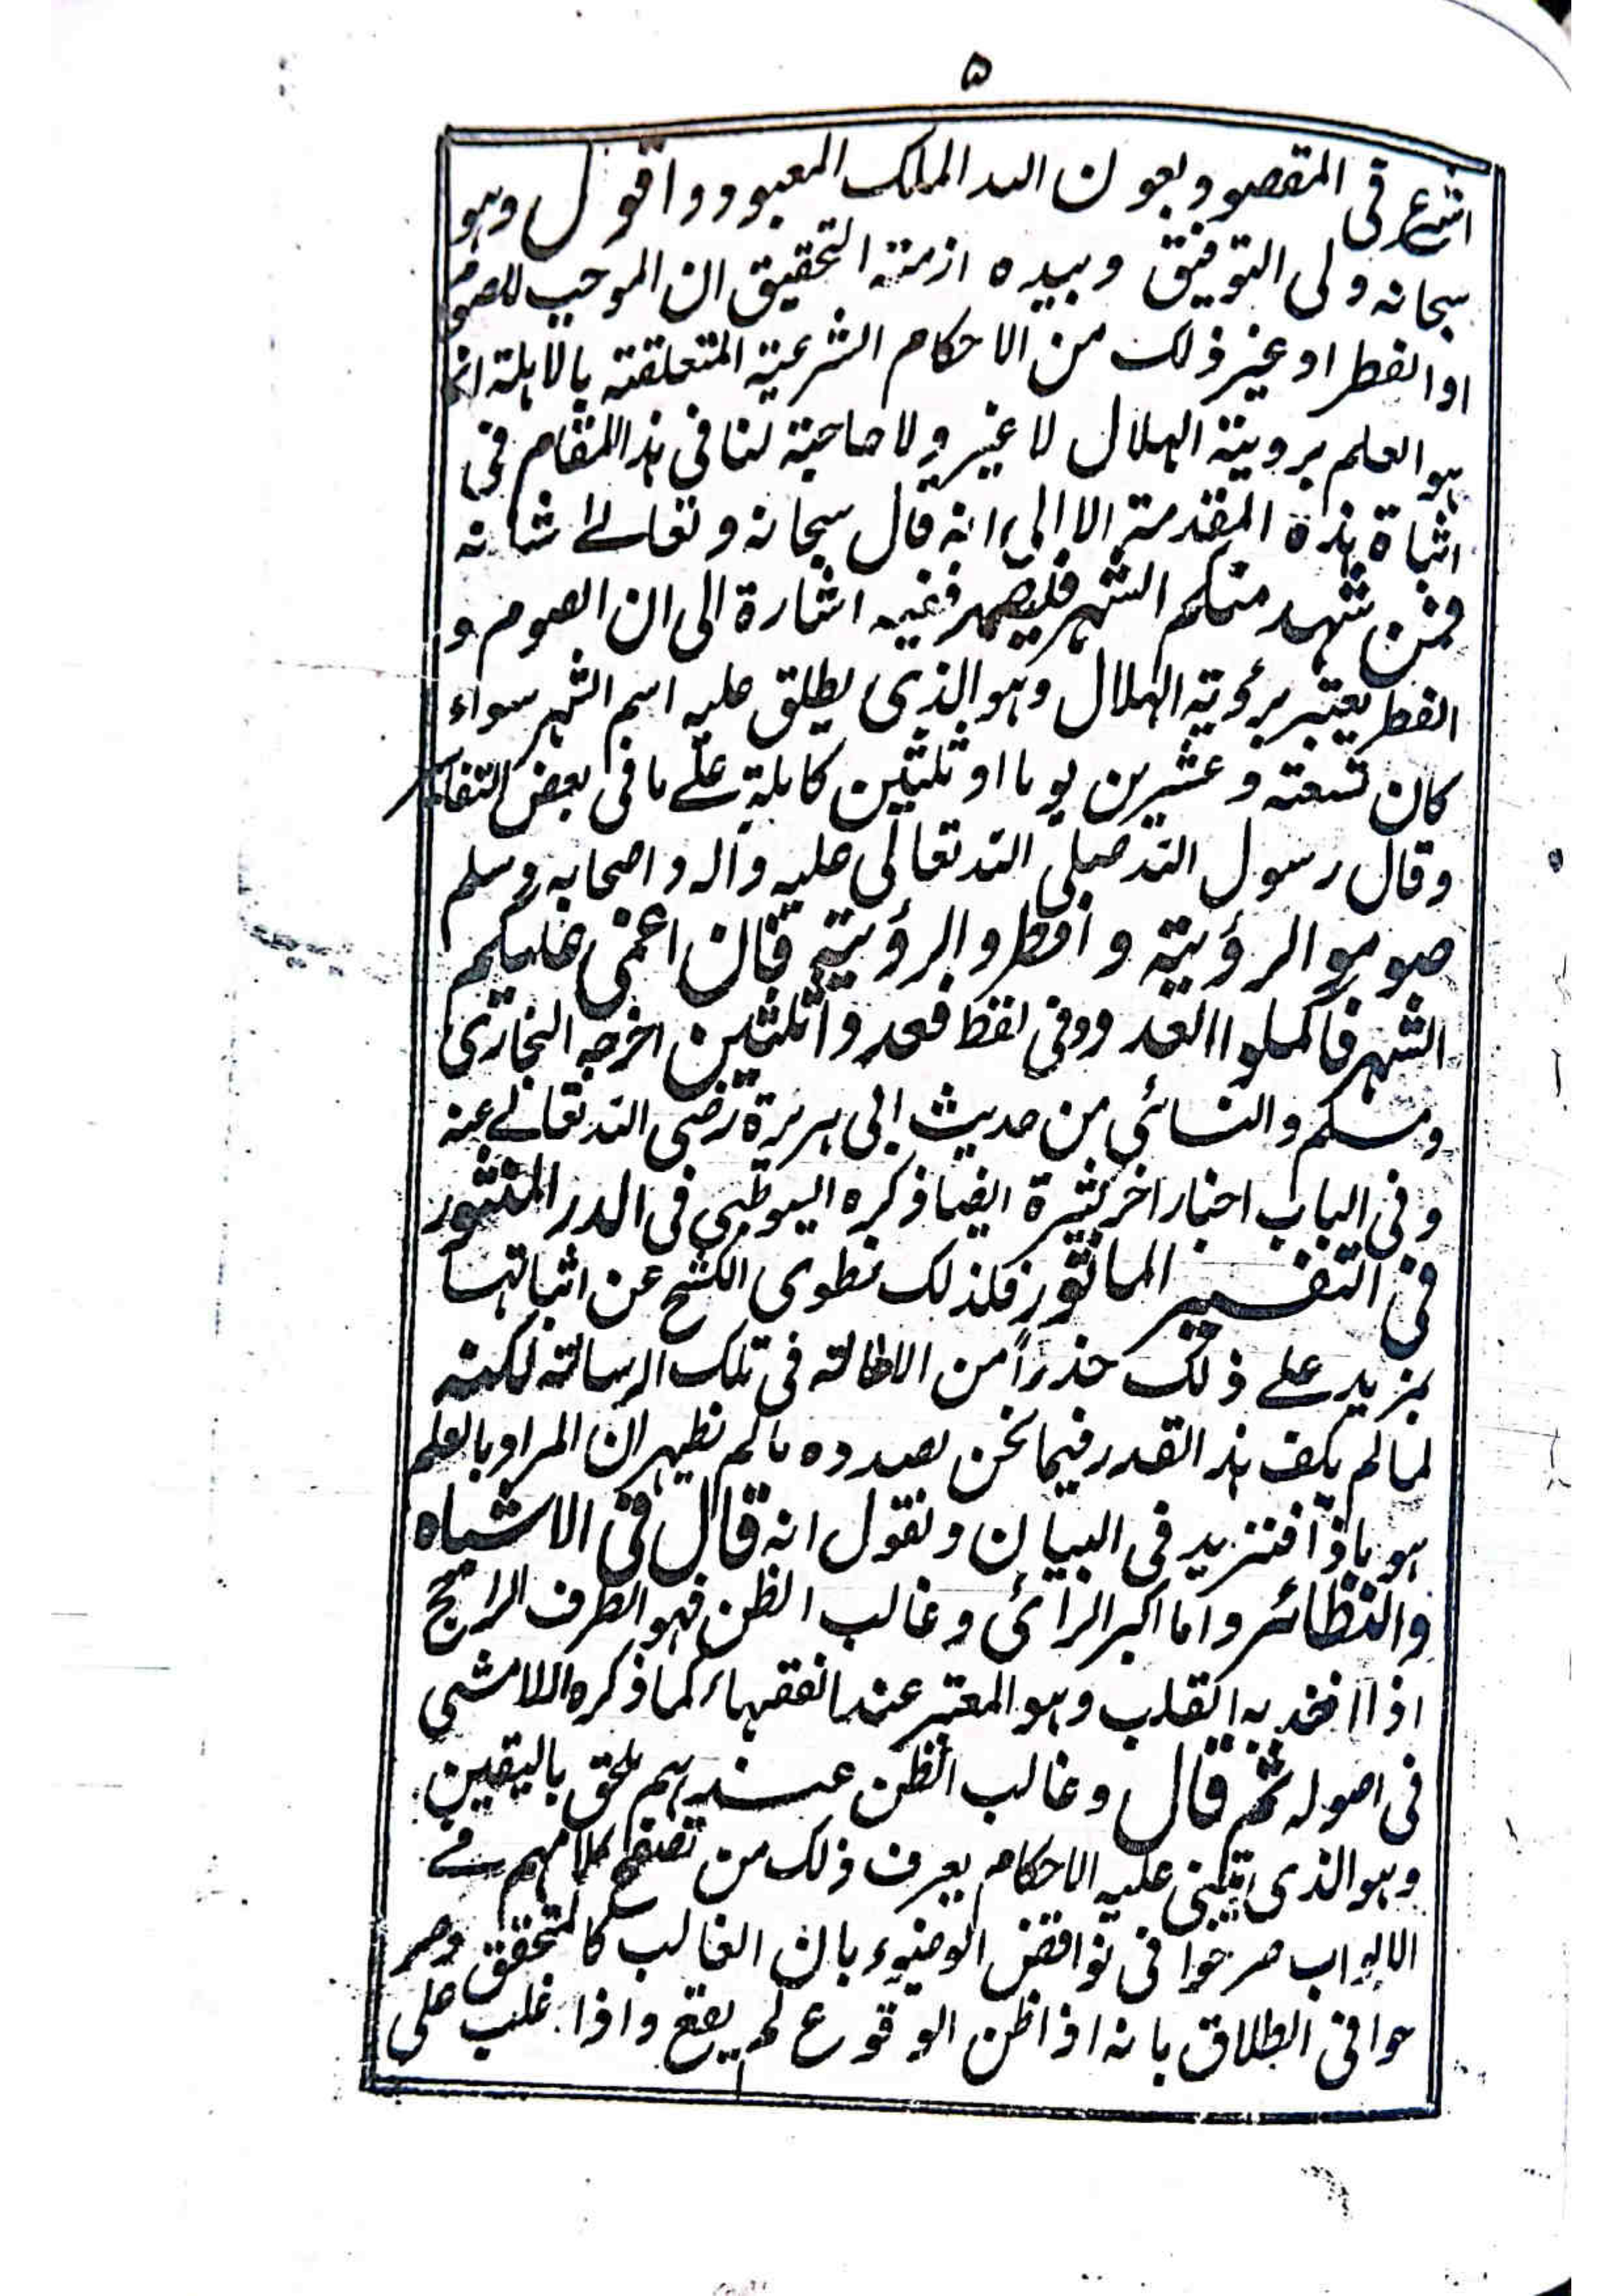 ۵
اشرع فی المقصود بعون اللہ الملک المعبود واقول وہو
سبحانہ ولی التوفیق وبیدہ ازمۃ التحقیق ان الموجب للصوم
اوالفطر او غیر ذلک من الاحکام الشرعیۃ المتعلقۃ بالاہلۃ انما
ہو العلم برویۃ الہلال لا غیر ولا حاجۃ لنا فی ہذا المقام فی
اثباۃ ہذہ المقدمۃ الا الی انہ قال سبحانہ وتعالےٰ شانہ
فمن شہد منکم الشہر فلیصمہ ففیہ اشارۃ الی ان الصوم و
الفطر یعتبر برؤیۃ الہلال وہو الذی یطلق علیہ اسم الشہر سواء
کان تسعۃ وعشرین یوما او ثلثین کاملۃ علے ما فی بعض التفاسیر
وقال رسول اللہ صلی اللہ تعالی علیہ وآلہ واصحابہ وسلم
صوموا لرؤیتہ وافطروا لرؤیتہ فان اغمی علیکم
الشہر فاکملوا العدد وفی لفظ فعدوا ثلثین اخرجہ البخاری
ومسلم والنسائی من حدیث ابی ہریرۃ رضی اللہ تعالےٰ عنہ
وفی الباب اخبار اخر کثیرۃ ایضا ذکرہ السیوطی فی الدر المنثور
فی التفسیر الماثور فلذلک نطوی الکشح عن اثباتہا
بمزید علے ذلک حذراً من الاطالۃ فی تلک الرسالۃ لکنہ
لما لم یکف ہذا القدر فیما نحن بصددہ مالم نظہر ان المراد بالعلم
ہو ماذا فنزید فی البیان ونقول انہ قال فی الاشباہ
والنظائر واما اکبر الرائی وغالب الظن فہو الطرف الراجح
اذا اخذ بہ القلب وہو المعتبر عند الفقہاء کما ذکرہ اللامشی
فی اصولہ ثم قال وغالب الظن عندہم ملحق بالیقین
وہو الذی یبتنی علیہ الاحکام یعرف ذلک من تصفح کلامہم فے
الابواب صرحوا فی نواقض الوضوء بان الغالب کالمتحقق وصر
حوا فی الطلاق بانہ اذا ظن الوقوع لم یقع واذا غلب علی